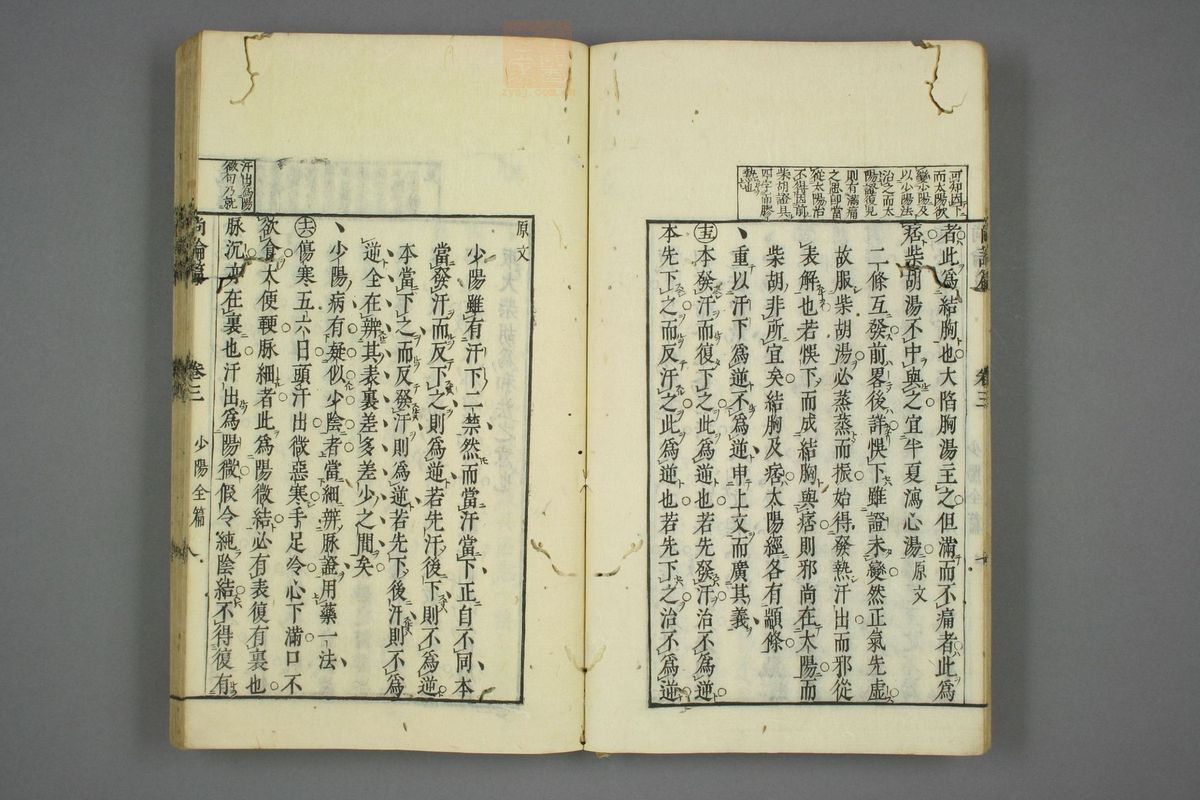 可知因下
而太陽欲
變少陽及
以少陽法
治之而太
陽證復見
則有滿痛
之患卽當
從太陽治
不得因前
柴胡證具
四字而膠
熱也
者此爲結胸也大陷胸湯主之但滿而不痛者此爲
痞柴胡湯不中與之宜半夏瀉心湯原文
二條互發前畧後詳悞下雖證未變然正氣先虛
故服柴胡湯必蒸蒸而振始得發熱汗出而邪從
表解也若悞下而成結胸與痞則邪尚在太陽而
柴胡非所宜矣結胸及痞太陽經各有顓條
重以汗下爲逆不爲逆申上文而廣其義
本發汗而復下之此爲逆也若先發汗治不爲逆
本先下之而反汗之此爲逆也若先下之治不爲逆
卷三
原文
少陽雖有汗下二禁然而當汗當下正自不同本
當發汗而反下之則爲逆若先汗後下則不爲逆
本當下之而反發汗則爲逆若先下後汗則不爲
逆全在辨其表裏差多差少之間矣
少陽病有疑似少陰者當細辨脉證用藥一法
傷寒五六日頭汗出微惡寒手足冷心下滿口不
欲食大便鞕脉細者此爲陽微結必有表復有裏也
脉沉亦在裏也汗出爲陽微假令純陰結不得復有
汗出爲陽
微句乃就
尚論篇 卷三 少陽全篇 八